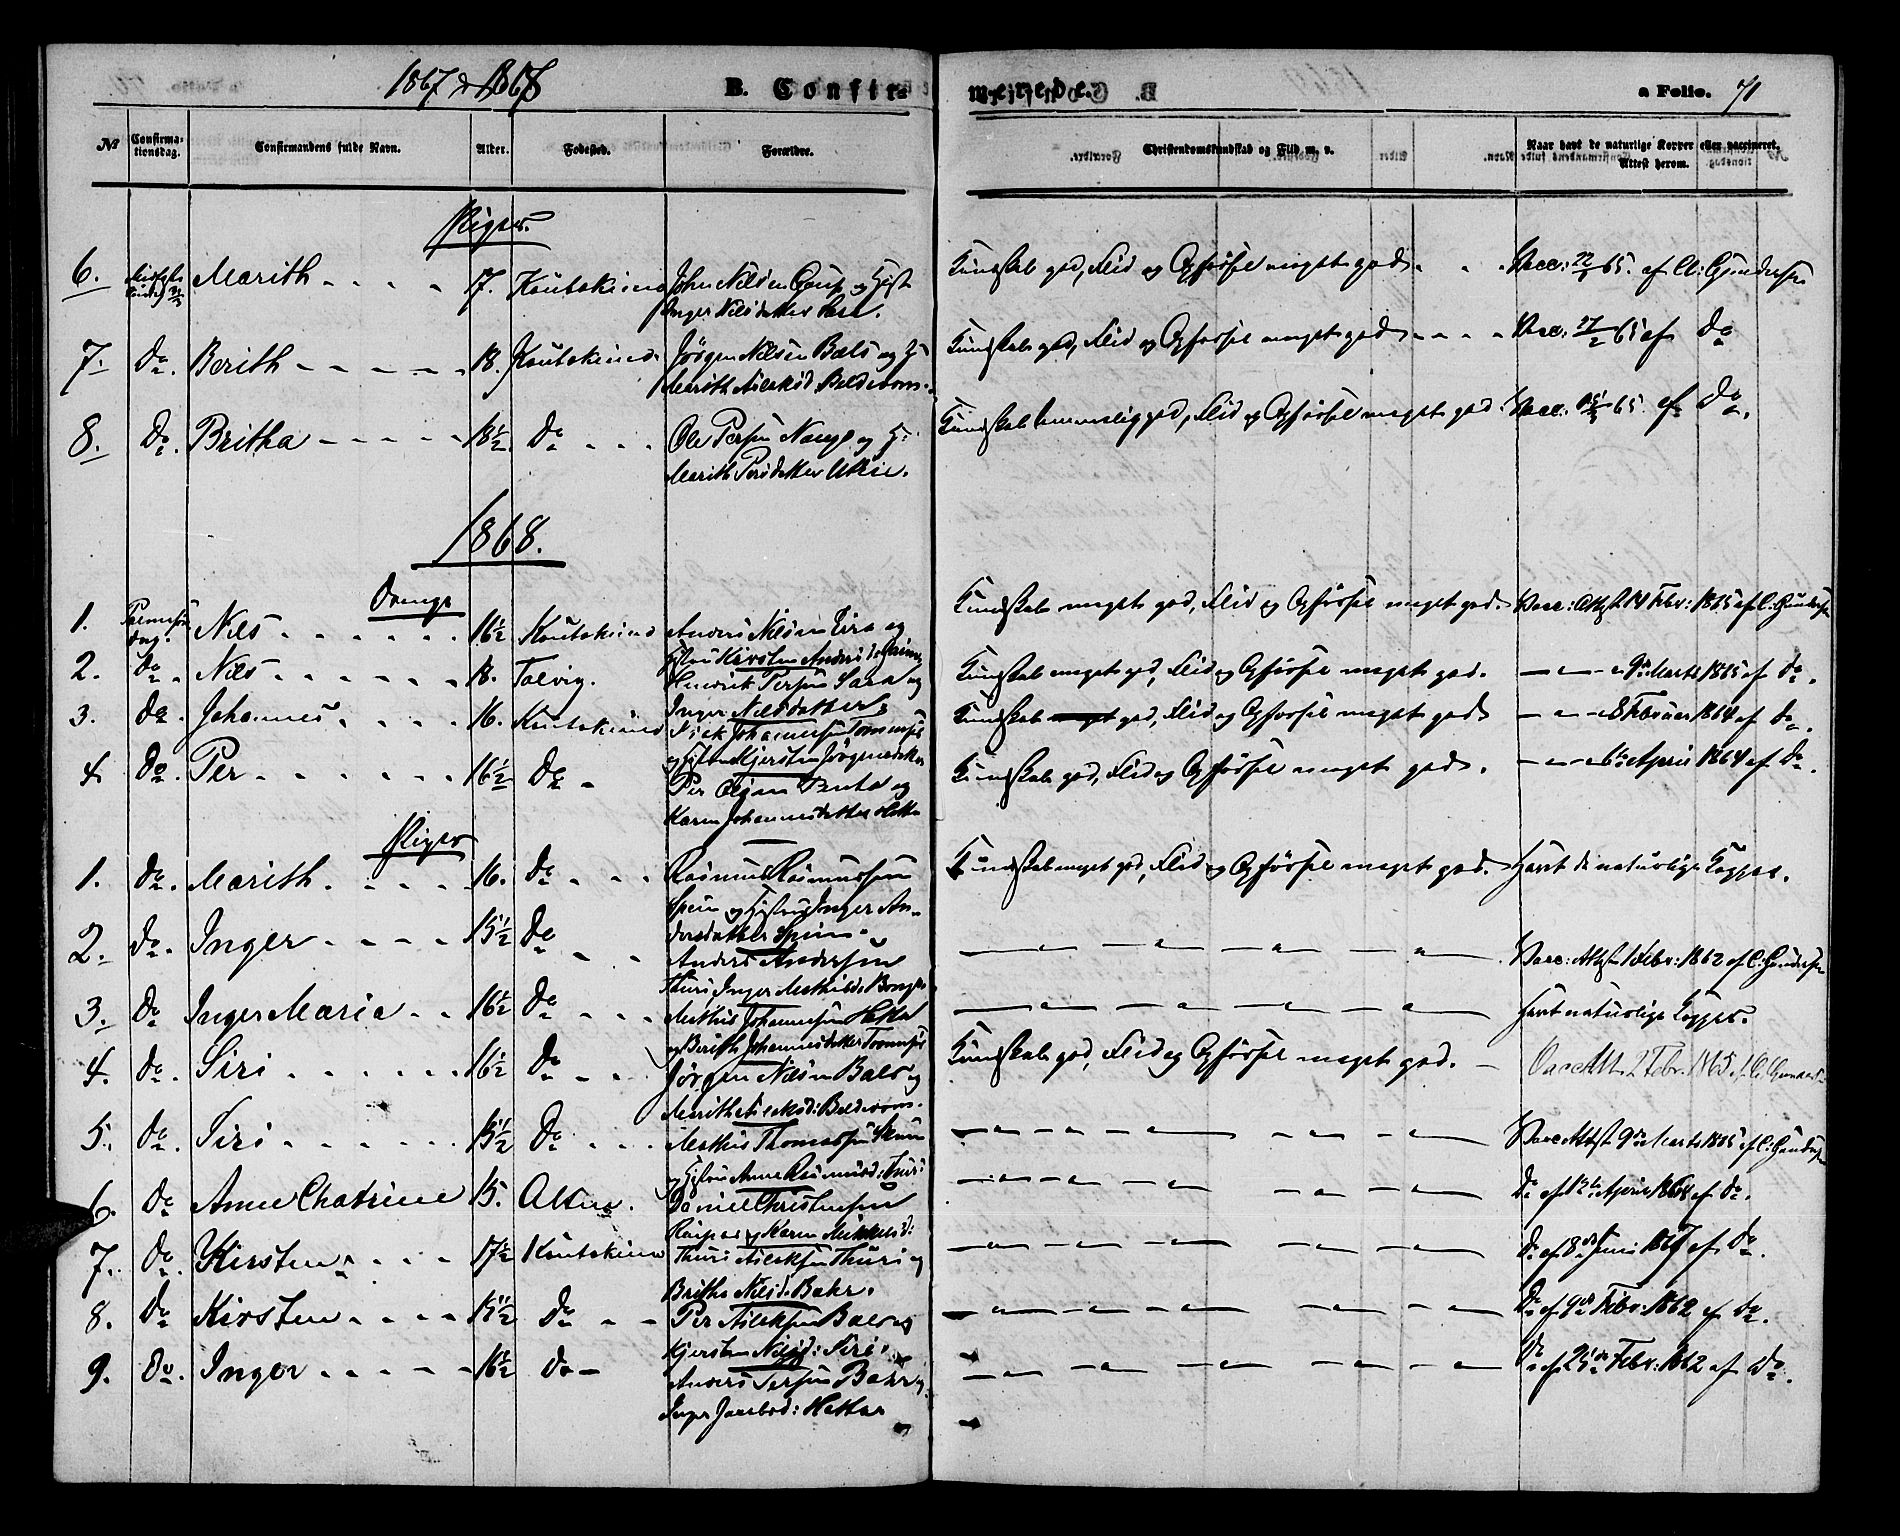 1867 & 1868
B. Confir-
merede.
a Folio. 71
No
Confirma-
tionsdag.
Confirmandens fulde Navn.
Alder.
Fødested.
Forældre.
Christendomskundskab og Flid m. v.
Naar havt de naturlige Kopper eller vaccineret.
Attest herom.
Piger.
6. Marith 17. Koutokeino John Nilsen Gaup og Hust Kundskab god, Flid og Opførsel meget god. Vacc: 65. af C: Gundersen
Inger Nilsdatter Sara.
7. do. Berith 18. Koutokeino Jørgen Nilsen Bals og H: Kundskab god, Flid og Opførsel meget god Vacc: 65 af do
Marith Aslaksd:
8. do. Britha 18½ do Ole Persen og H: Kundskab temmelig god, Flid og Opførsel meget god. Vacc: 65. af do.
Marith Persdatter Utsie.
1868.
Drenge
1. Nils 16½ Koutokeino Anders Nilsen og Kundskab meget god, Flid og Opførsel meget god. Vacc: Attest 14 Febr: 1865 af C: Gundersen
Hustru Kirsten Andersd:
2. do. Nils 18. Talvig. Henrik Persen Sara og Kundskab meget god, Flid og Opførsel meget god. 9de Marts 1865 af do.
Inger Nilsdatter
3. do. Johannes 16. Koutokeino Isak Johannesen Kundskab god, Flid og Opførsel meget god 8 Februar 1864 af do.
og Hustru Kjersten Jørgensdatter
4. do. Per 16½ do Per Olsen og Kundskab god, Flid og Opførsel meget god. 6te April 1864 af do.
Karen Johannesdatter Hætta
Piger
1. do. Marith 16. do Rasmus Rasmussen Kundskab meget god, Flid og Opførsel meget god. Havt de naturlige Kopper.
Spein og Hustru Inger An-
dersdatter Spein.
2. do. Inger 15½ do Anders Andersen Vacc: Attest 1 Febr: 1862 af C: Gundersen
Thuri, Inger Mathisd:
3. do Inger Maria 16½ do Mathis Johannesen Hætta Havt naturlige Kopper.
og Berith Johannesdatter
4. do. Siri 16½ do Jørgen Nilsen Bals og Kundskab god, Flid og Opførsel meget god. Vacc Att. 2 Febr. 1865 af C. Gunders
Marith Aslaksd:
5. do. Siri 15½ do Mathis Thomassen Vacc Attest 9de Marts 1865 af C: Gundersen
og Hustru Anne Rasmusd: Thuri
6. do Anne Chatrine 15. Alten. Daniel Christensen do af April 1864 af do.
og Karen Mikkelsd:
7. do. Kirsten 17½ Koutokeino Thuri Aslaksen Thuri og do af 8de Juni 1867 af do.
Britha Nilsd: Bahr.
8. do Kirsten 15½ do Per Aslaksen Bals og do af 9de Febr: 1862 af do.
Kjersten Nilsd: Siri.
9. do. Inger 16½ do Anders Persen Bahr og do af 25de Febr: 1862 af do.
Inger Jacobsd: Hætta